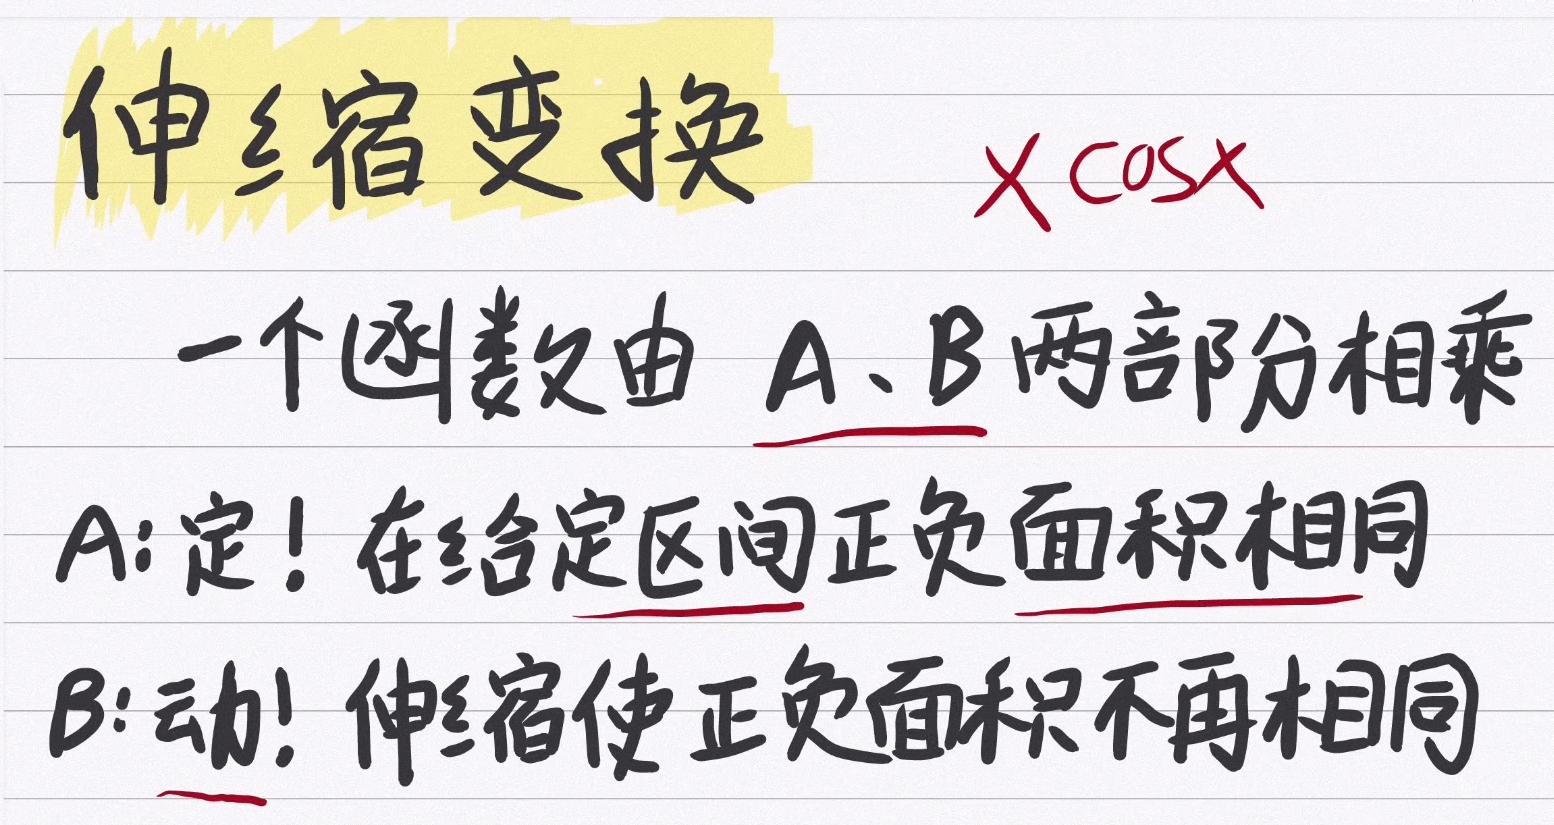 伸缩变换 xcosx
一个函数由 A、B两部分相乘
A:定!在给定区间正负面积相同
B:动!伸缩使正负面积不再相同